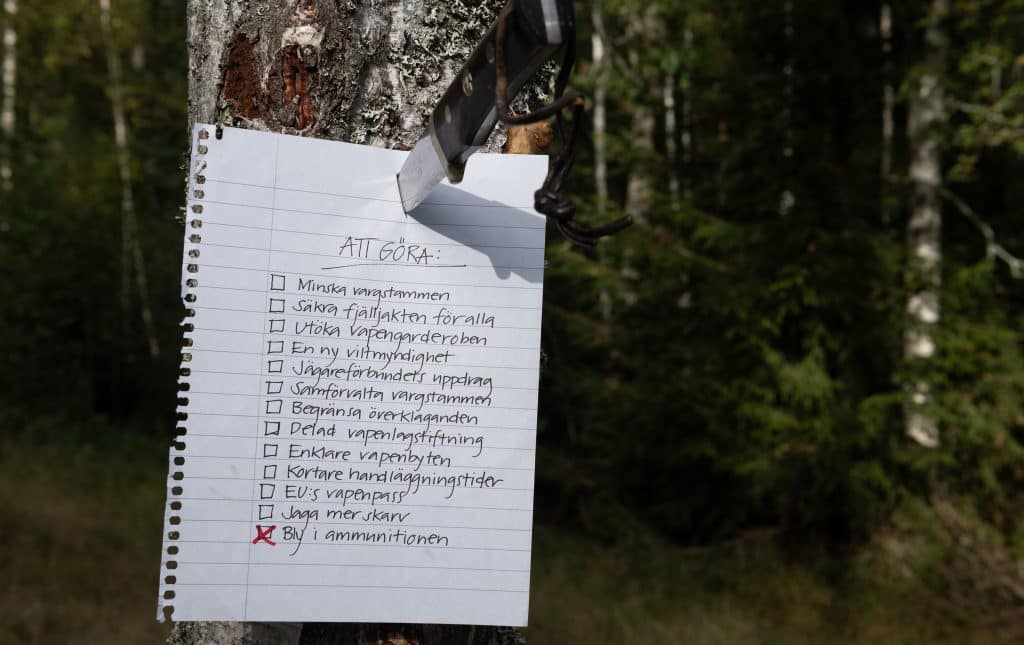 ATT GÖRA:
Minska vargstammen
Säkra fjälljakten för alla
Utöka vapengarderoben
En ny viltmyndighet
Jägareförbundets uppdrag
Samförvalta vargstammen
Begränsa överklaganden
Delad vapenlagstiftning
Enklare vapenbyten
Kortare handläggningstider
EU:s vapenpass
Jaga mer skarv
Bly i ammunitionen